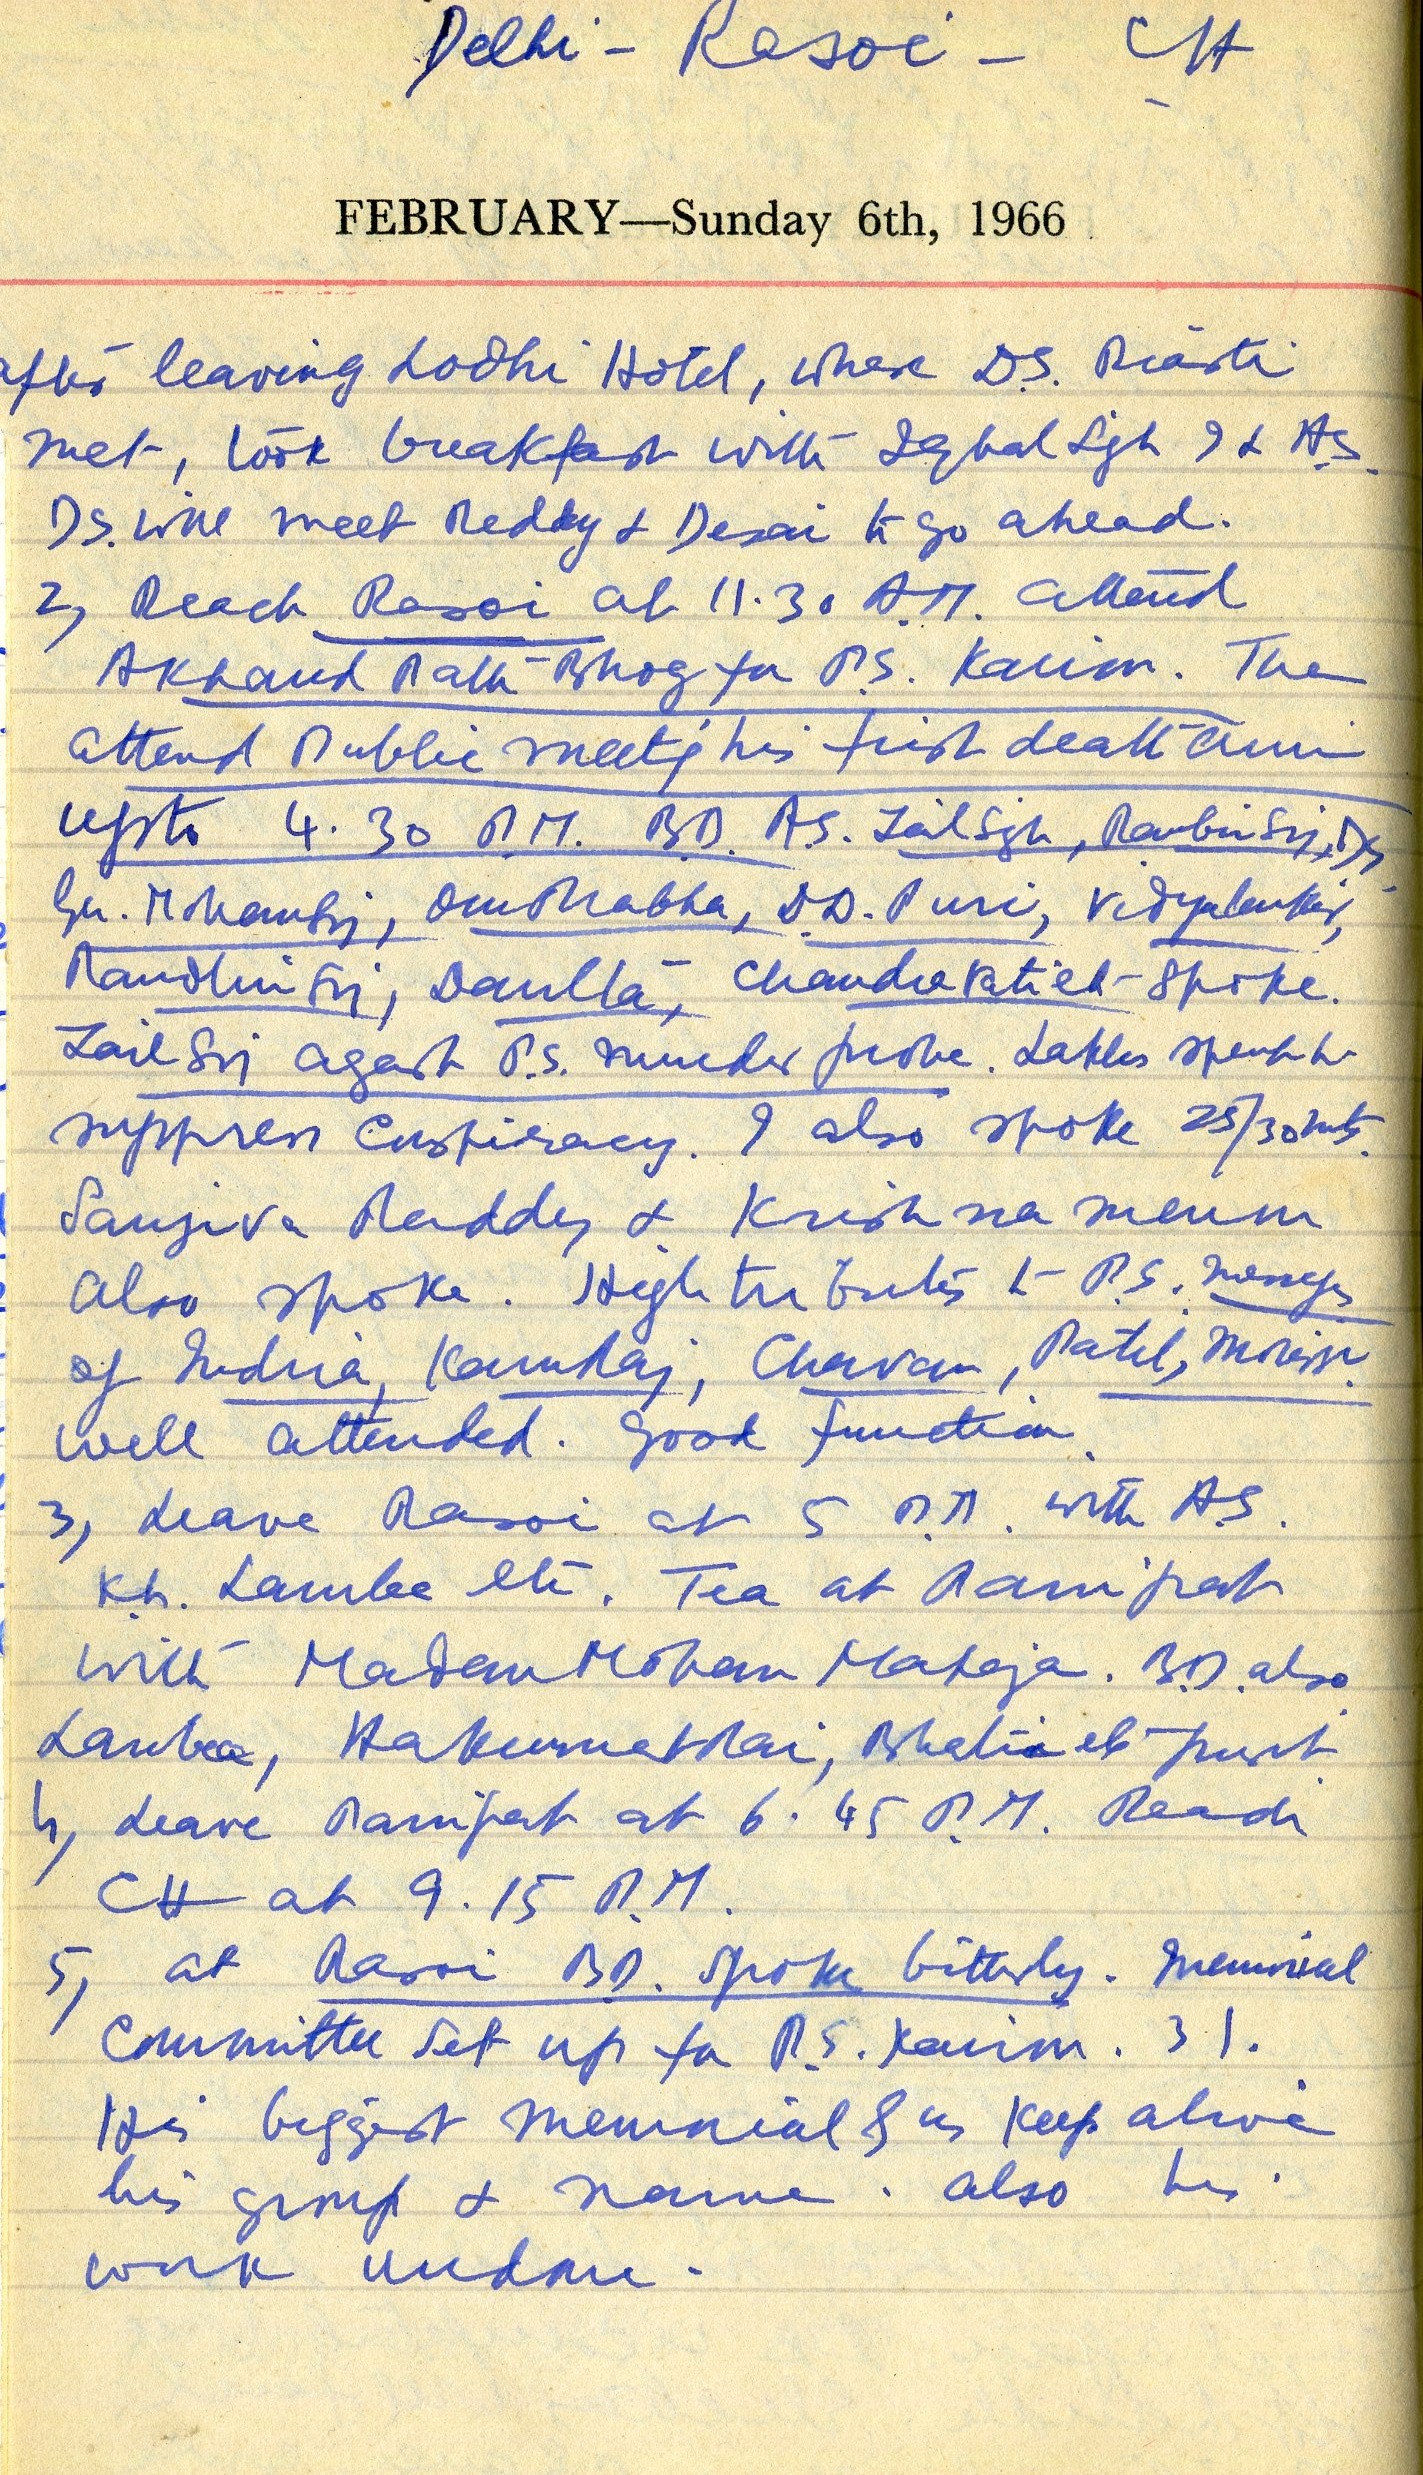 Delhi - Rasoi - CH
FEBRUARY—Sunday 6th, 1966
after leaving Lodhi Hotel, where D.S.
met, took breakfast with Iqbal Sgh I & A.S.
D.S. will meet Reddy & Desai to go ahead.
2, Reach Rasoi at 11.30 A.M. attend
Akhand Path Bhog for P.S. Kairon. The
attend Public meetg his first death anni
upto 4.30 P.M. B.D. A.S. Zail Sgh, Ranbir Sg,
Gu. Mohan Sg, Om Prabha, D.D. Puri, Vidyalankar,
Randhir Sg, Daulta, Chandravati etc spoke.
Zail Sg agast P.S. murder probe. Lakhs spent to
suppress Conspiracy. I also spoke 25/30 mts.
Sanjiva Reddy & Krishna menon
also spoke. High tributes to P.S. messages
of Indria, Kamraj, Chavan, Patil,
well attended. Good function.
3, Leave Rasoi at 5 P.M. with A.S.
K.L. Lamba etc. Tea at Panipat
with Madan Mohan Makeja. B.D. also
Lamba, Hakumat Rai, Bhatia etc prest
4, Leave Panipat at 6.45 P.M. Reach
CH at 9.15 P.M.
5, at Rasoi B.D. spoke bitterly. Memorial
Committee set up for P.S. Kairon. 31.
His biggest memorial if us keep alive
his group & name. also his
work undone.